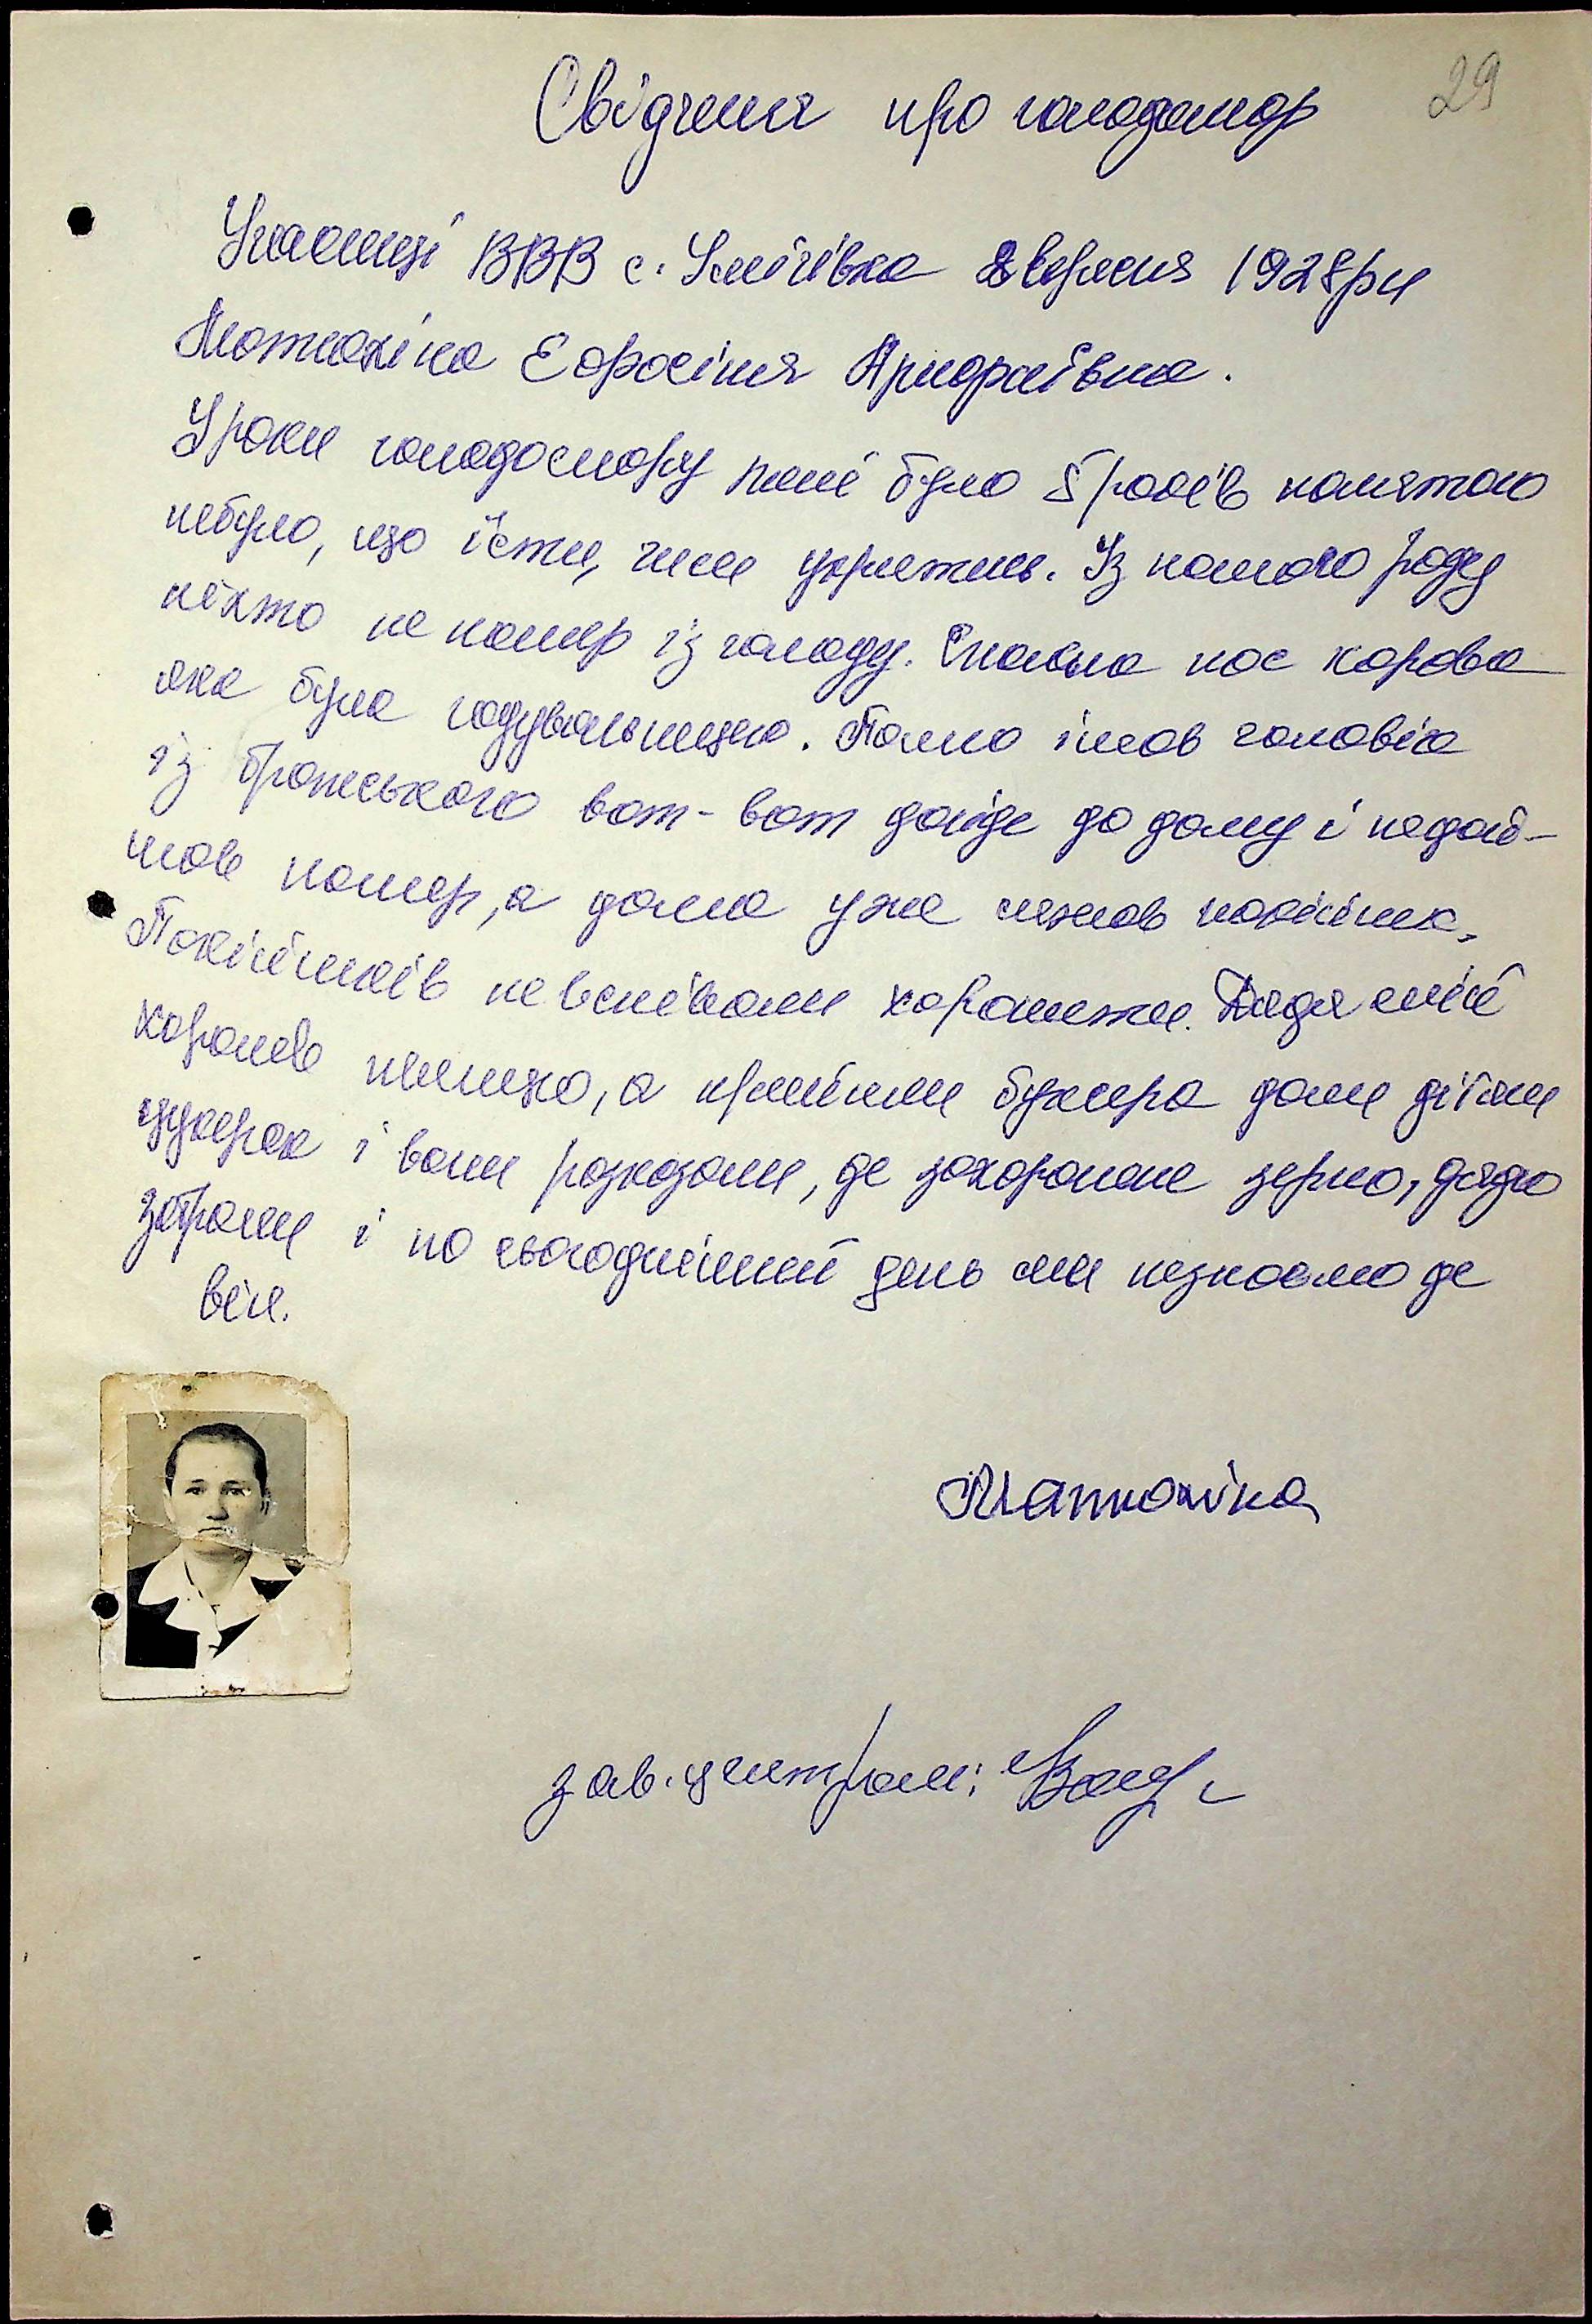 29
Свідчення про голодомор
Учасниці ВВВ с. Зміївка 2 вересня 1928 рн
Матюхіна Єфросінія Андріївна.
У роки голодомору мені було 5 років памятаю
небуло, що їсти, чим укритись. Із нашого роду
ніхто не помер із голоду. Спасла нас корова
яка була годувальницею. Помню ішов чоловік
із бражського вот-вот дойде до дому і недой-
шов помер, а дома уже лежав покійник.
Покійників невспівали хоронити. Дядя мій
хоронев пшеницю, а прийшли буксира дали дітям
цукерок і вони розказали, де захоронене зерно, дядю
забрали і по сьогоднішній день ми незнаємо де
він.
Матюхіна
зав. центром: